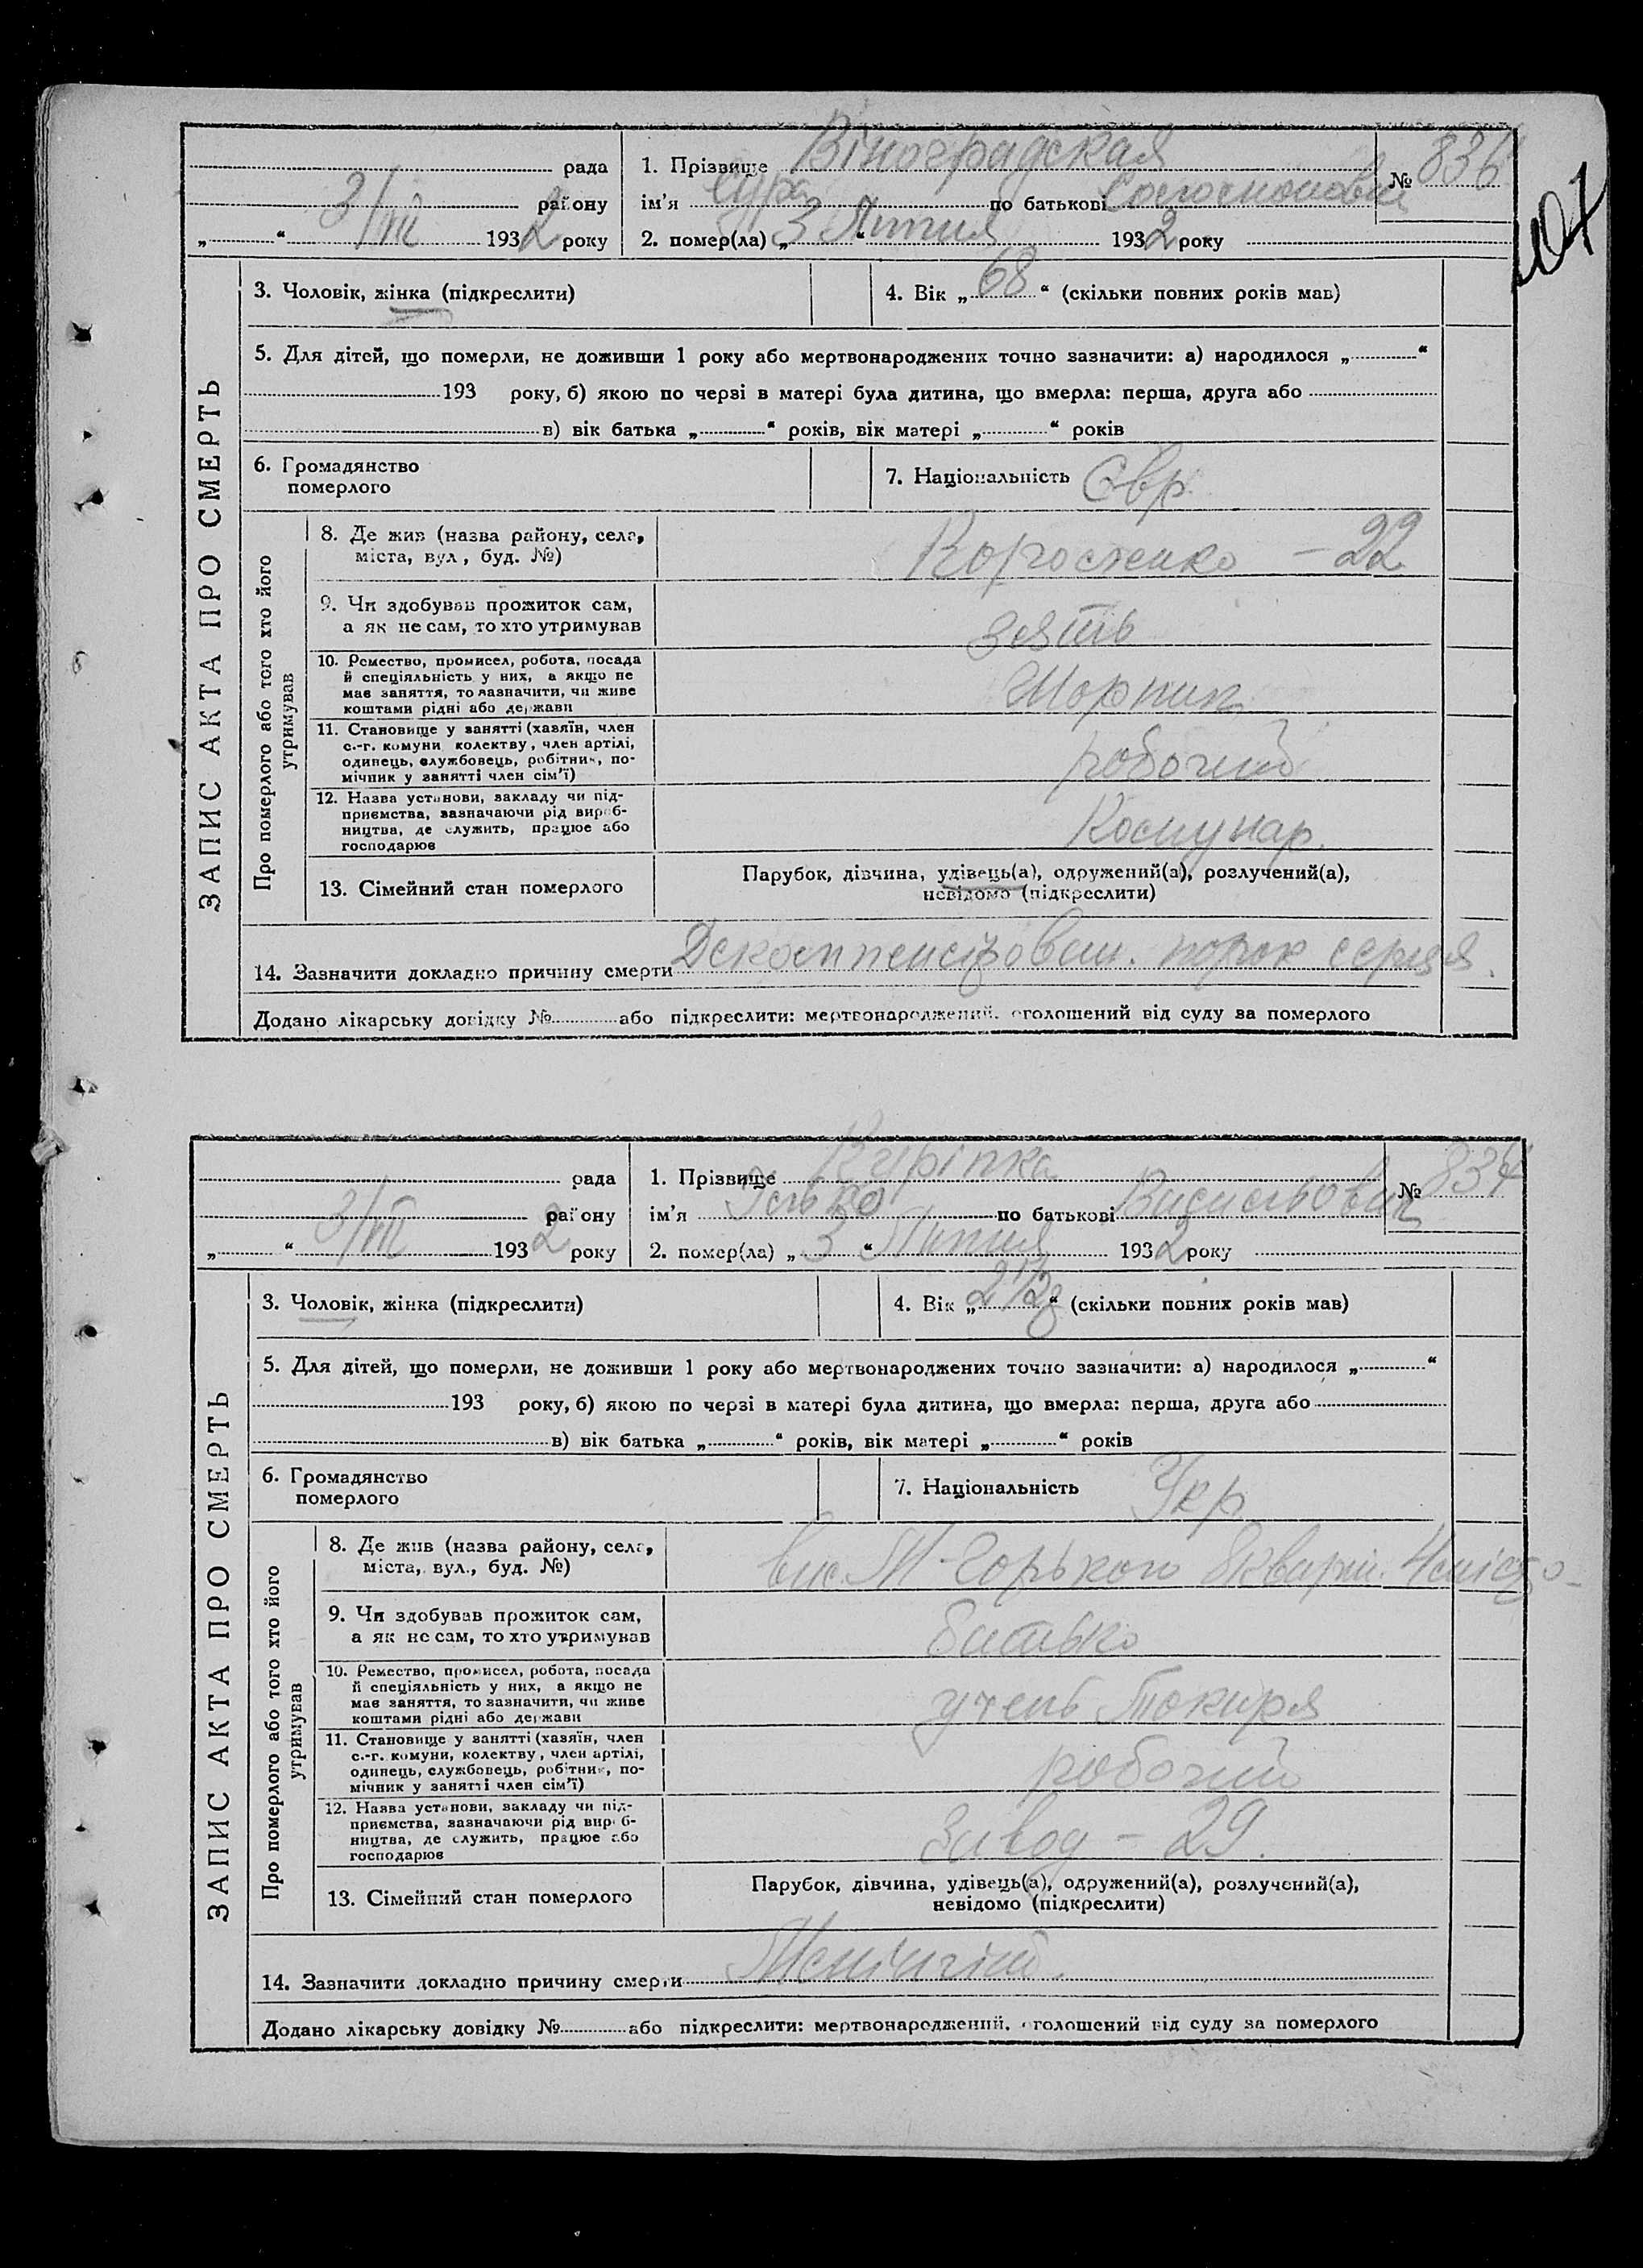 Віноградская
рада 1. Прізвище № 836
району ім'я Сура по батькові Соломоновна
„ “ 3/VII 1932 року 2. помер(ла) „ 3 “ Липня 1932 року
107
3. Чоловік, жінка (підкреслити) 4. Вік „ 68 “ (скільки повних років мав)
5. Для дітей, що померли, не доживши 1 року або мертвонароджених точно зазначити: а) народилося „ “
193 року, б) якою по черзі в матері була дитина, що вмерла: перша, друга або
в) вік батька „ “ років, вік матері „ “ років
6. Громадянство
померлого
7. Національність Євр.
ЗАПИС АКТА ПРО СМЕРТЬ
Про померлого або того хто його
утримував
8. Де жив (назва району, села,
міста, вул, буд. №) – 22
9. Чи здобував прожиток сам,
а як не сам, то хто утримував зять
10. Ремество, промисел, робота, посада
й спеціяльність у них, а якщо не
має заняття, то зазначити, чи живе
коштами рідні або держави
11. Становище у занятті (хазяїн, член
с.-г. комуни колектву, член артілі,
одинець, службовець, робітник, по-
мічник у занятті член сім'ї) робочий
12. Назва установи, закладу чи під-
приємства, зазначаючи рід вироб-
ництва, де служить, працює або
господарює Комунар.
13. Сімейний стан померлого Парубок, дівчина, удівець(а), одружений(а), розлучений(а),
невідомо (підкреслити)
14. Зазначити докладно причину смерти Декомпенсірован. порок серця.
Додано лікарську довідку № або підкреслити: мертвонароджений, оголошений від суду за померлого
Куріпка
рада 1. Прізвище № 834
району ім'я по батькові Васильович
„ “ 3/VII 1932 року 2. помер(ла) „ 3 “ Липня 1932 року
3. Чоловік, жінка (підкреслити) 4. Вік „ 2 1/2 “ (скільки повних років мав)
5. Для дітей, що померли, не доживши 1 року або мертвонароджених точно зазначити: а) народилося „ “
193 року, б) якою по черзі в матері була дитина, що вмерла: перша, друга або
в) вік батька „ “ років, вік матері „ “ років
6. Громадянство
померлого
7. Національність Укр
ЗАПИС АКТА ПРО СМЕРТЬ
Про померлого або того хто його
утримував
8. Де жив (назва району, села,
міста, вул., буд. №) М-Горького
9. Чи здобував прожиток сам,
а як не сам, то хто утримував батько
10. Ремество, промисел, робота, посада
й спеціяльність у них, а якщо не
має заняття, то зазначити, чи живе
коштами рідні або держави учень токаря
11. Становище у занятті (хазяїн, член
с.-г. комуни, колектву, член артілі,
одинець, службовець, робітник, по-
мічник у занятті член сім'ї) робочий
12. Назва установи, закладу чи під-
приємства, зазначаючи рід вироб-
ництва, де служить, працює або
господарює Завод – 29.
13. Сімейний стан померлого Парубок, дівчина, удівець(а), одружений(а), розлучений(а),
невідомо (підкреслити)
14. Зазначити докладно причину смерти Менінгіт.
Додано лікарську довідку № або підкреслити: мертвонароджений, оголошений від суду за померлого